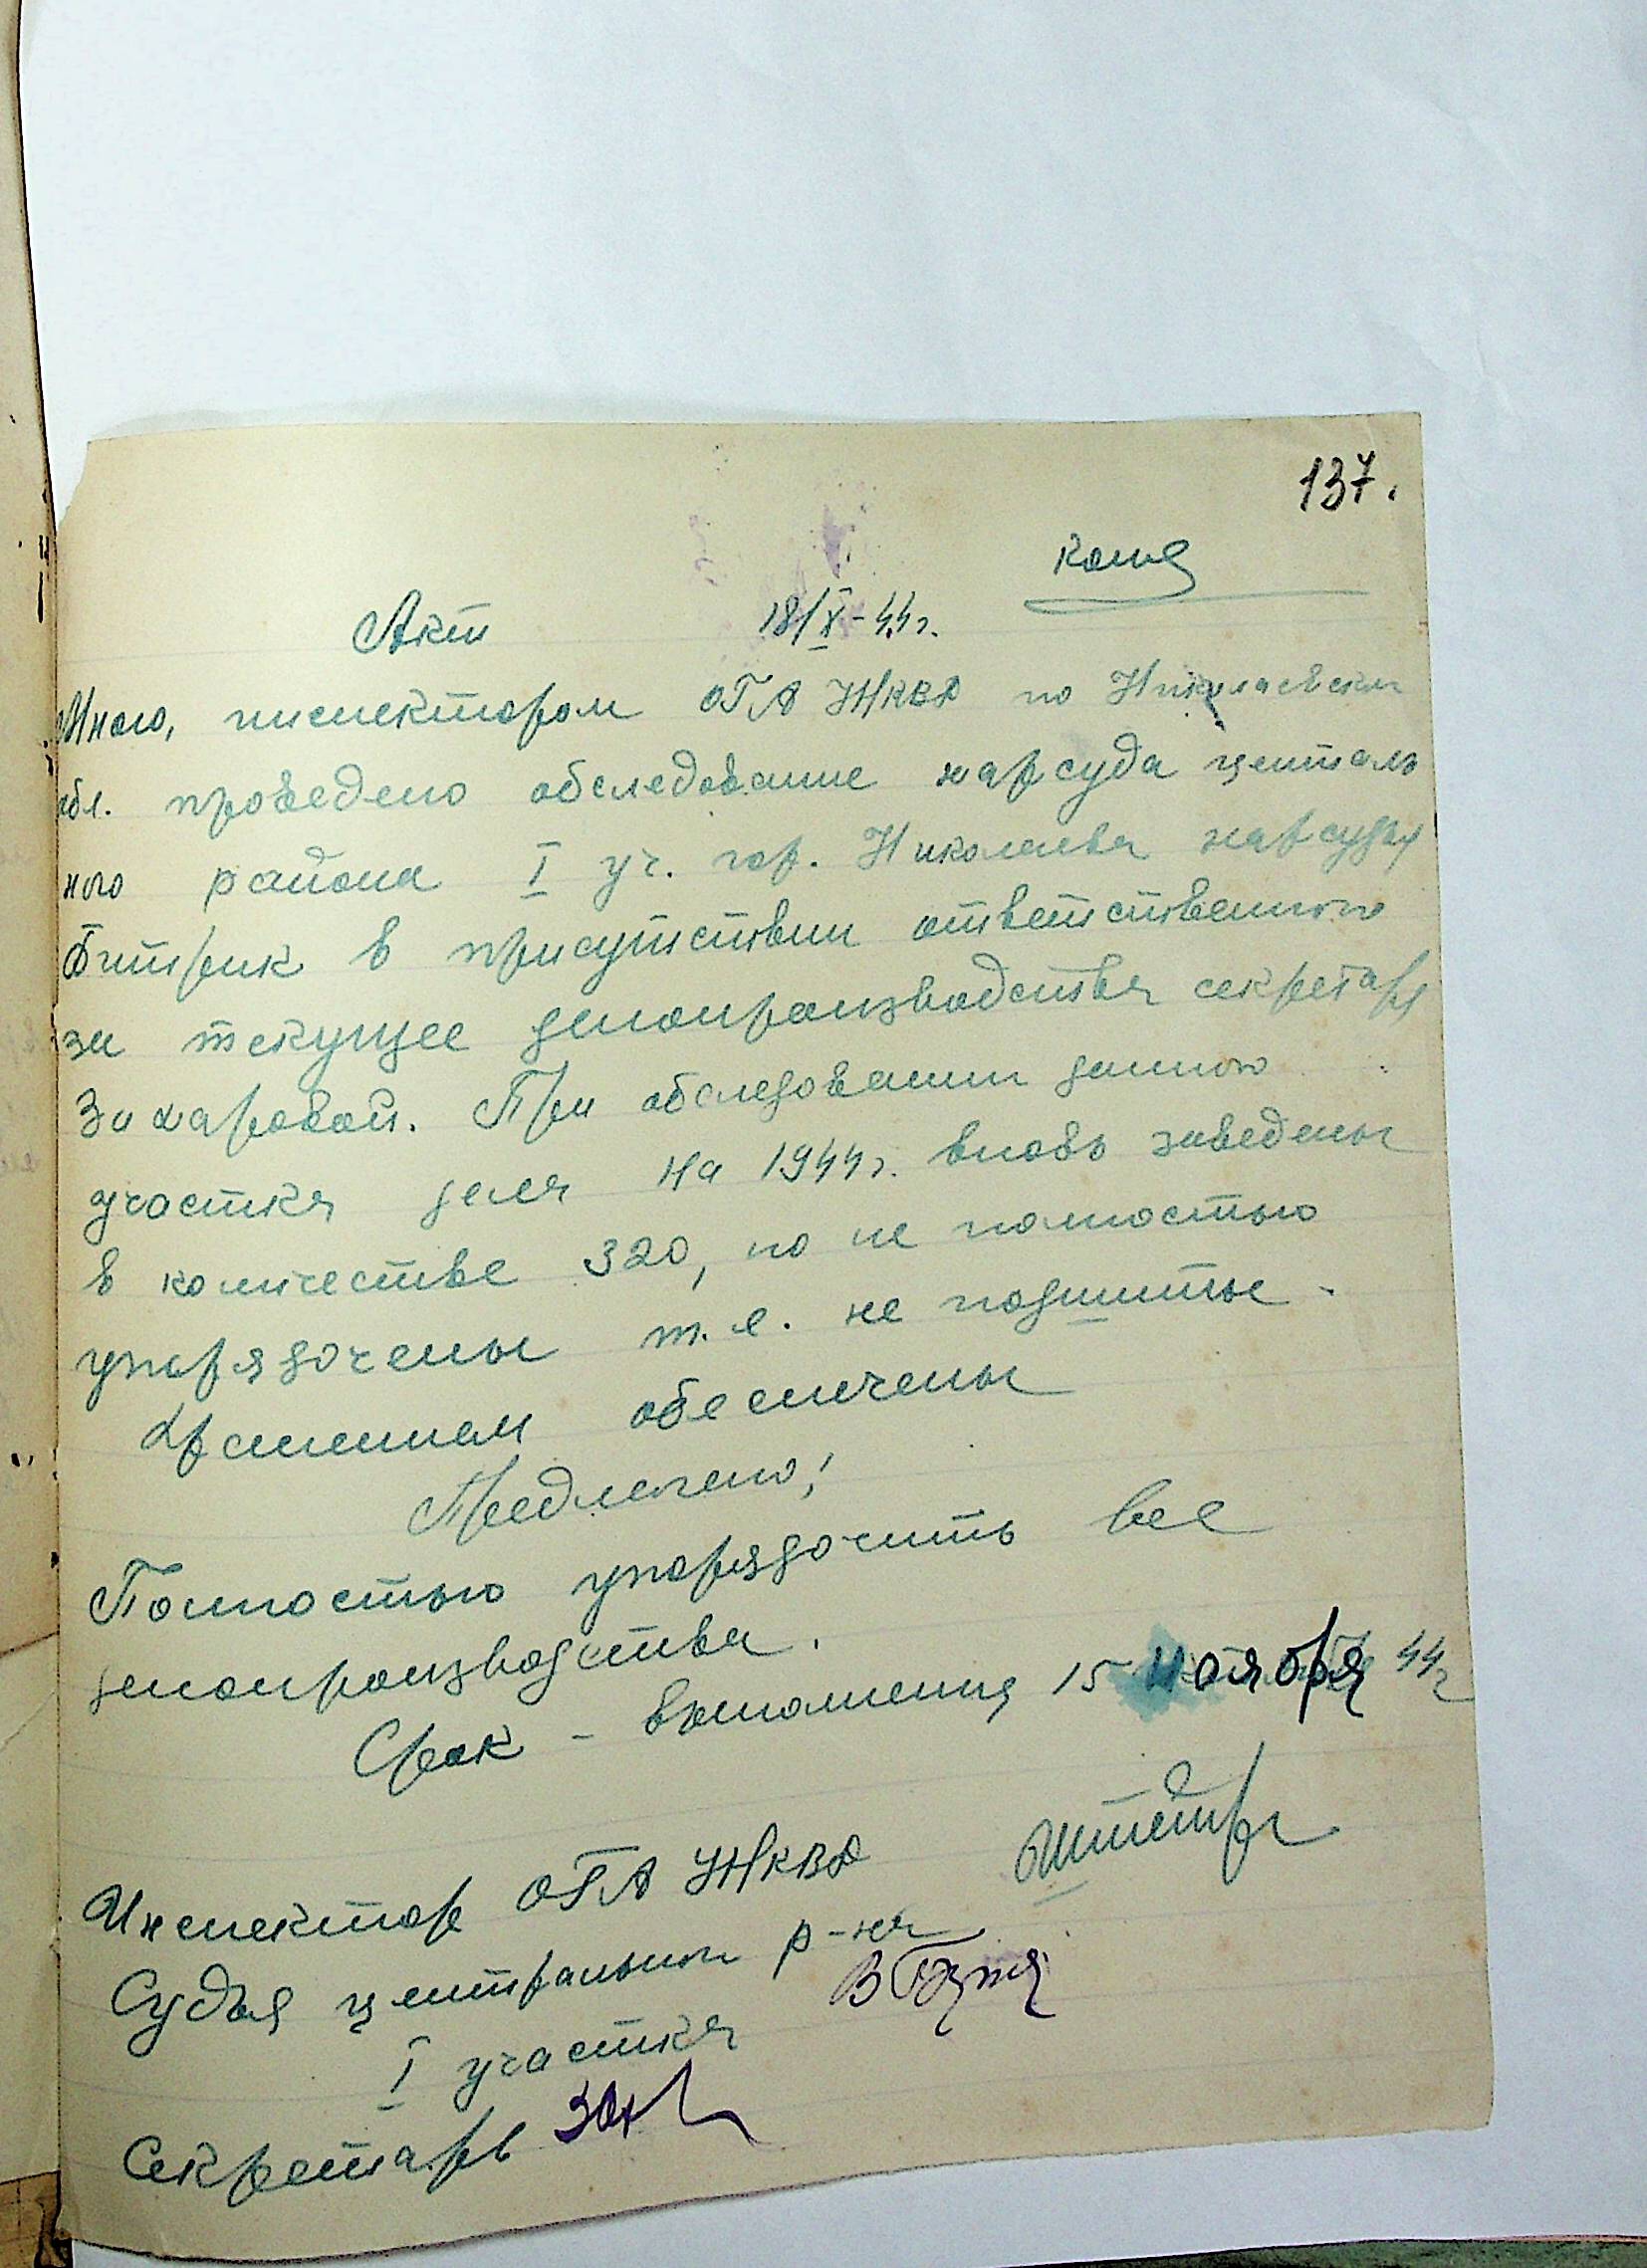 137.
копия
Акт 18/X-44г.
Мною, инспектором ОГА УНКВД по Николаевской
обл. проведено обследование нарсуда централь
ного района I уч. гор. Николаева нарсудья
в присутствии ответственного
за текущее делопроизводства секретаря
Захаровой. При обследовании данного
участка дела на 1944г. вновь заведены
в количестве 320, но не полностью
упорядочены т.е. не подшиты.
Хранением обеспечены
Предложено:
Полностью упорядочить все
делопроизводства.
Срок - выполнения 15 ноября 44г
Инспектор ОГА УНКВД
Судья центрального р-на
I участка
Секретарь Зах